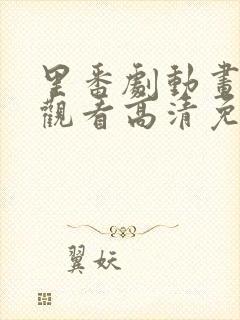 里番劇動畫
觀看高清免
翼妖